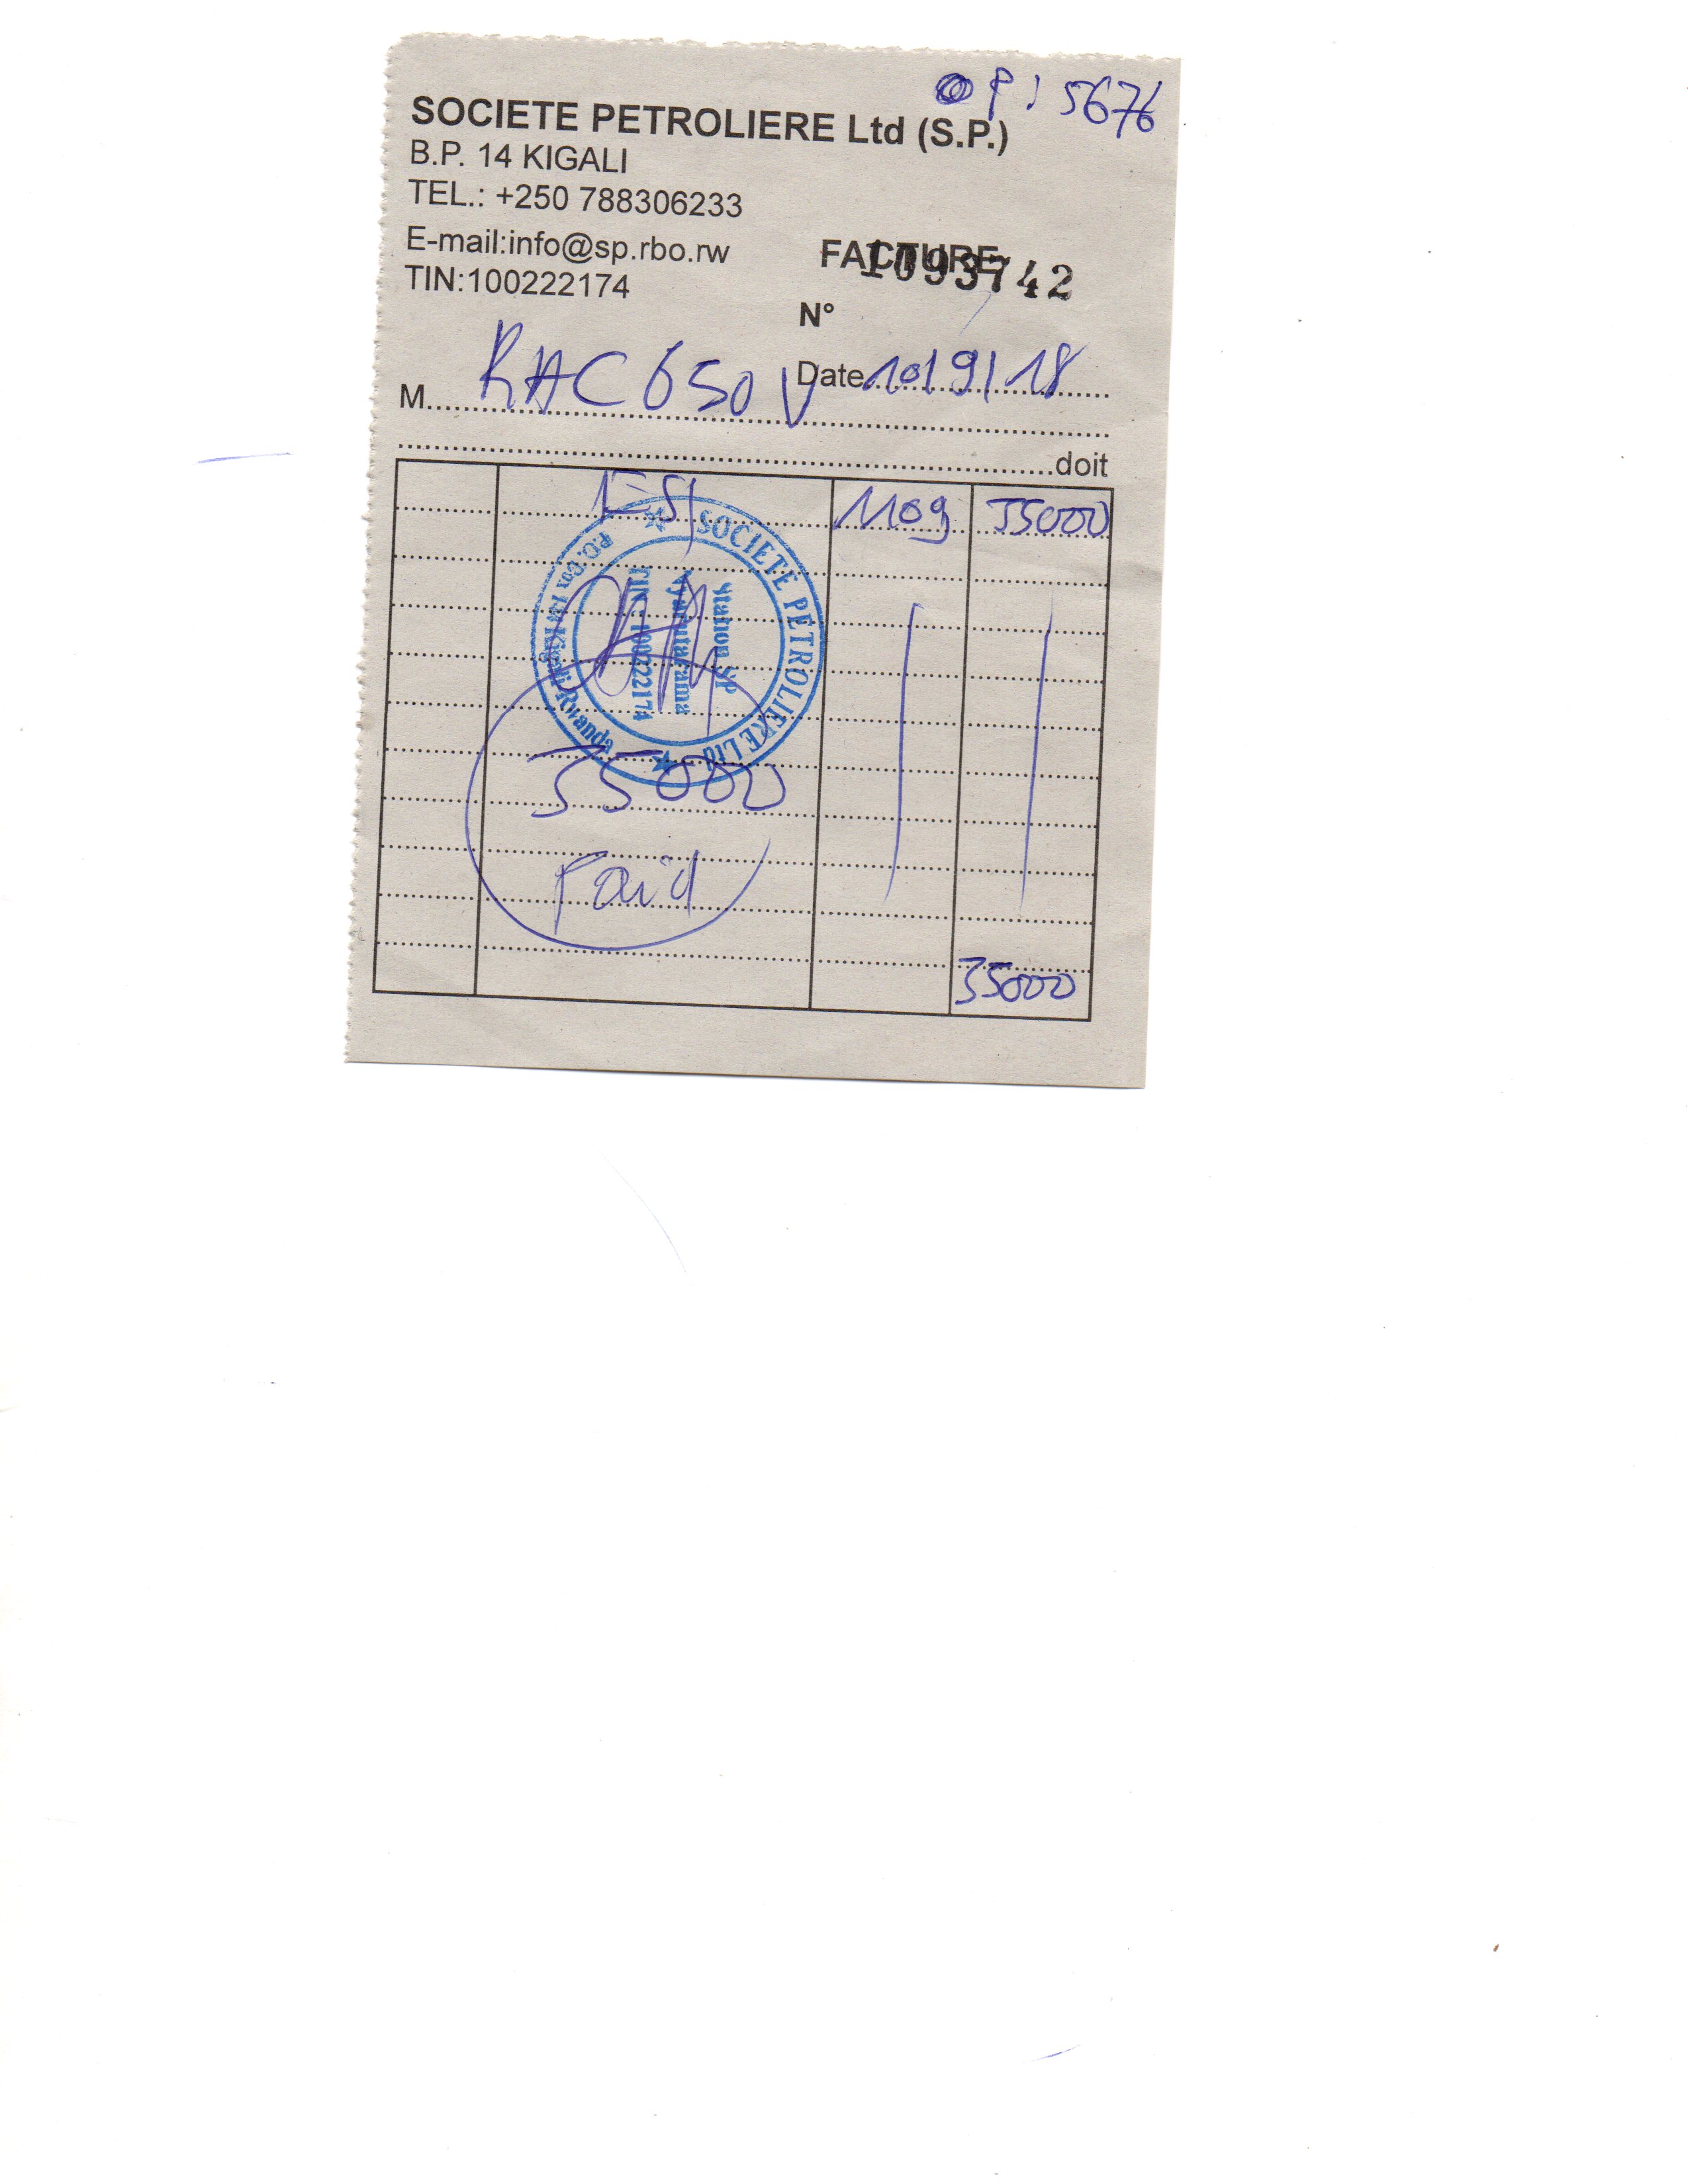 OP: 5676
SOCIETE PETROLIERE Ltd (S.P.)
B.P. 14 KIGALI
TEL.: +250 788306233
E-mail:info@sp.rbo.rw
TIN:100222174
FACTURE
1093742
N°
Date 10/9/18
M RAC 650 V
doit
1109 35000
SOCIETE PETROLIERE Ltd
Station SP
TIN 100222174
Kigali-Rwanda
35000
Paid
35000